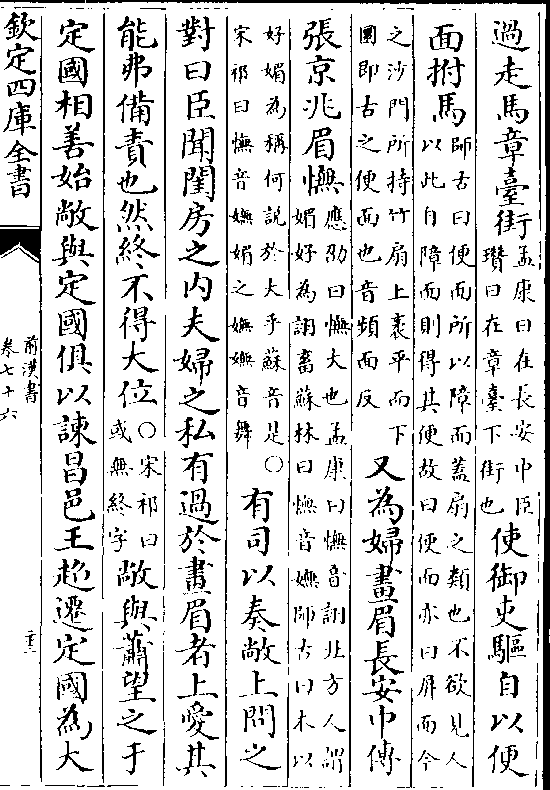 過走馬章臺街
孟康曰在長安中臣
瓚曰在章臺下街也
使御史驅自以便
面拊馬
師古曰便面所以障面蓋扇之類也不欲見人
以此自障面則得其便故曰便面亦曰屏面今
之沙門所持竹扇上袤平而下
圜即古之便面也音頻面反
又為婦畫眉長安中傳
張京兆眉憮
應劭曰憮大也孟康曰憮音詡北方人謂
媚好為詡畜蘇林曰憮音嫵師古曰本以
好媚為稱何説於大乎蘇音是○
宋祁曰憮音嫵媚之嫵嫵音舞
有司以奏敞上問之
對曰臣聞閨房之内夫婦之私有過於畫眉者上愛其
能弗備責也然終不得大位
○宋祁曰
或無終字
敞與蕭望之于
定國相善始敞與定國俱以諫昌邑王超遷定國為大
欽定四庫全書
前漢書
卷七十六
二十三